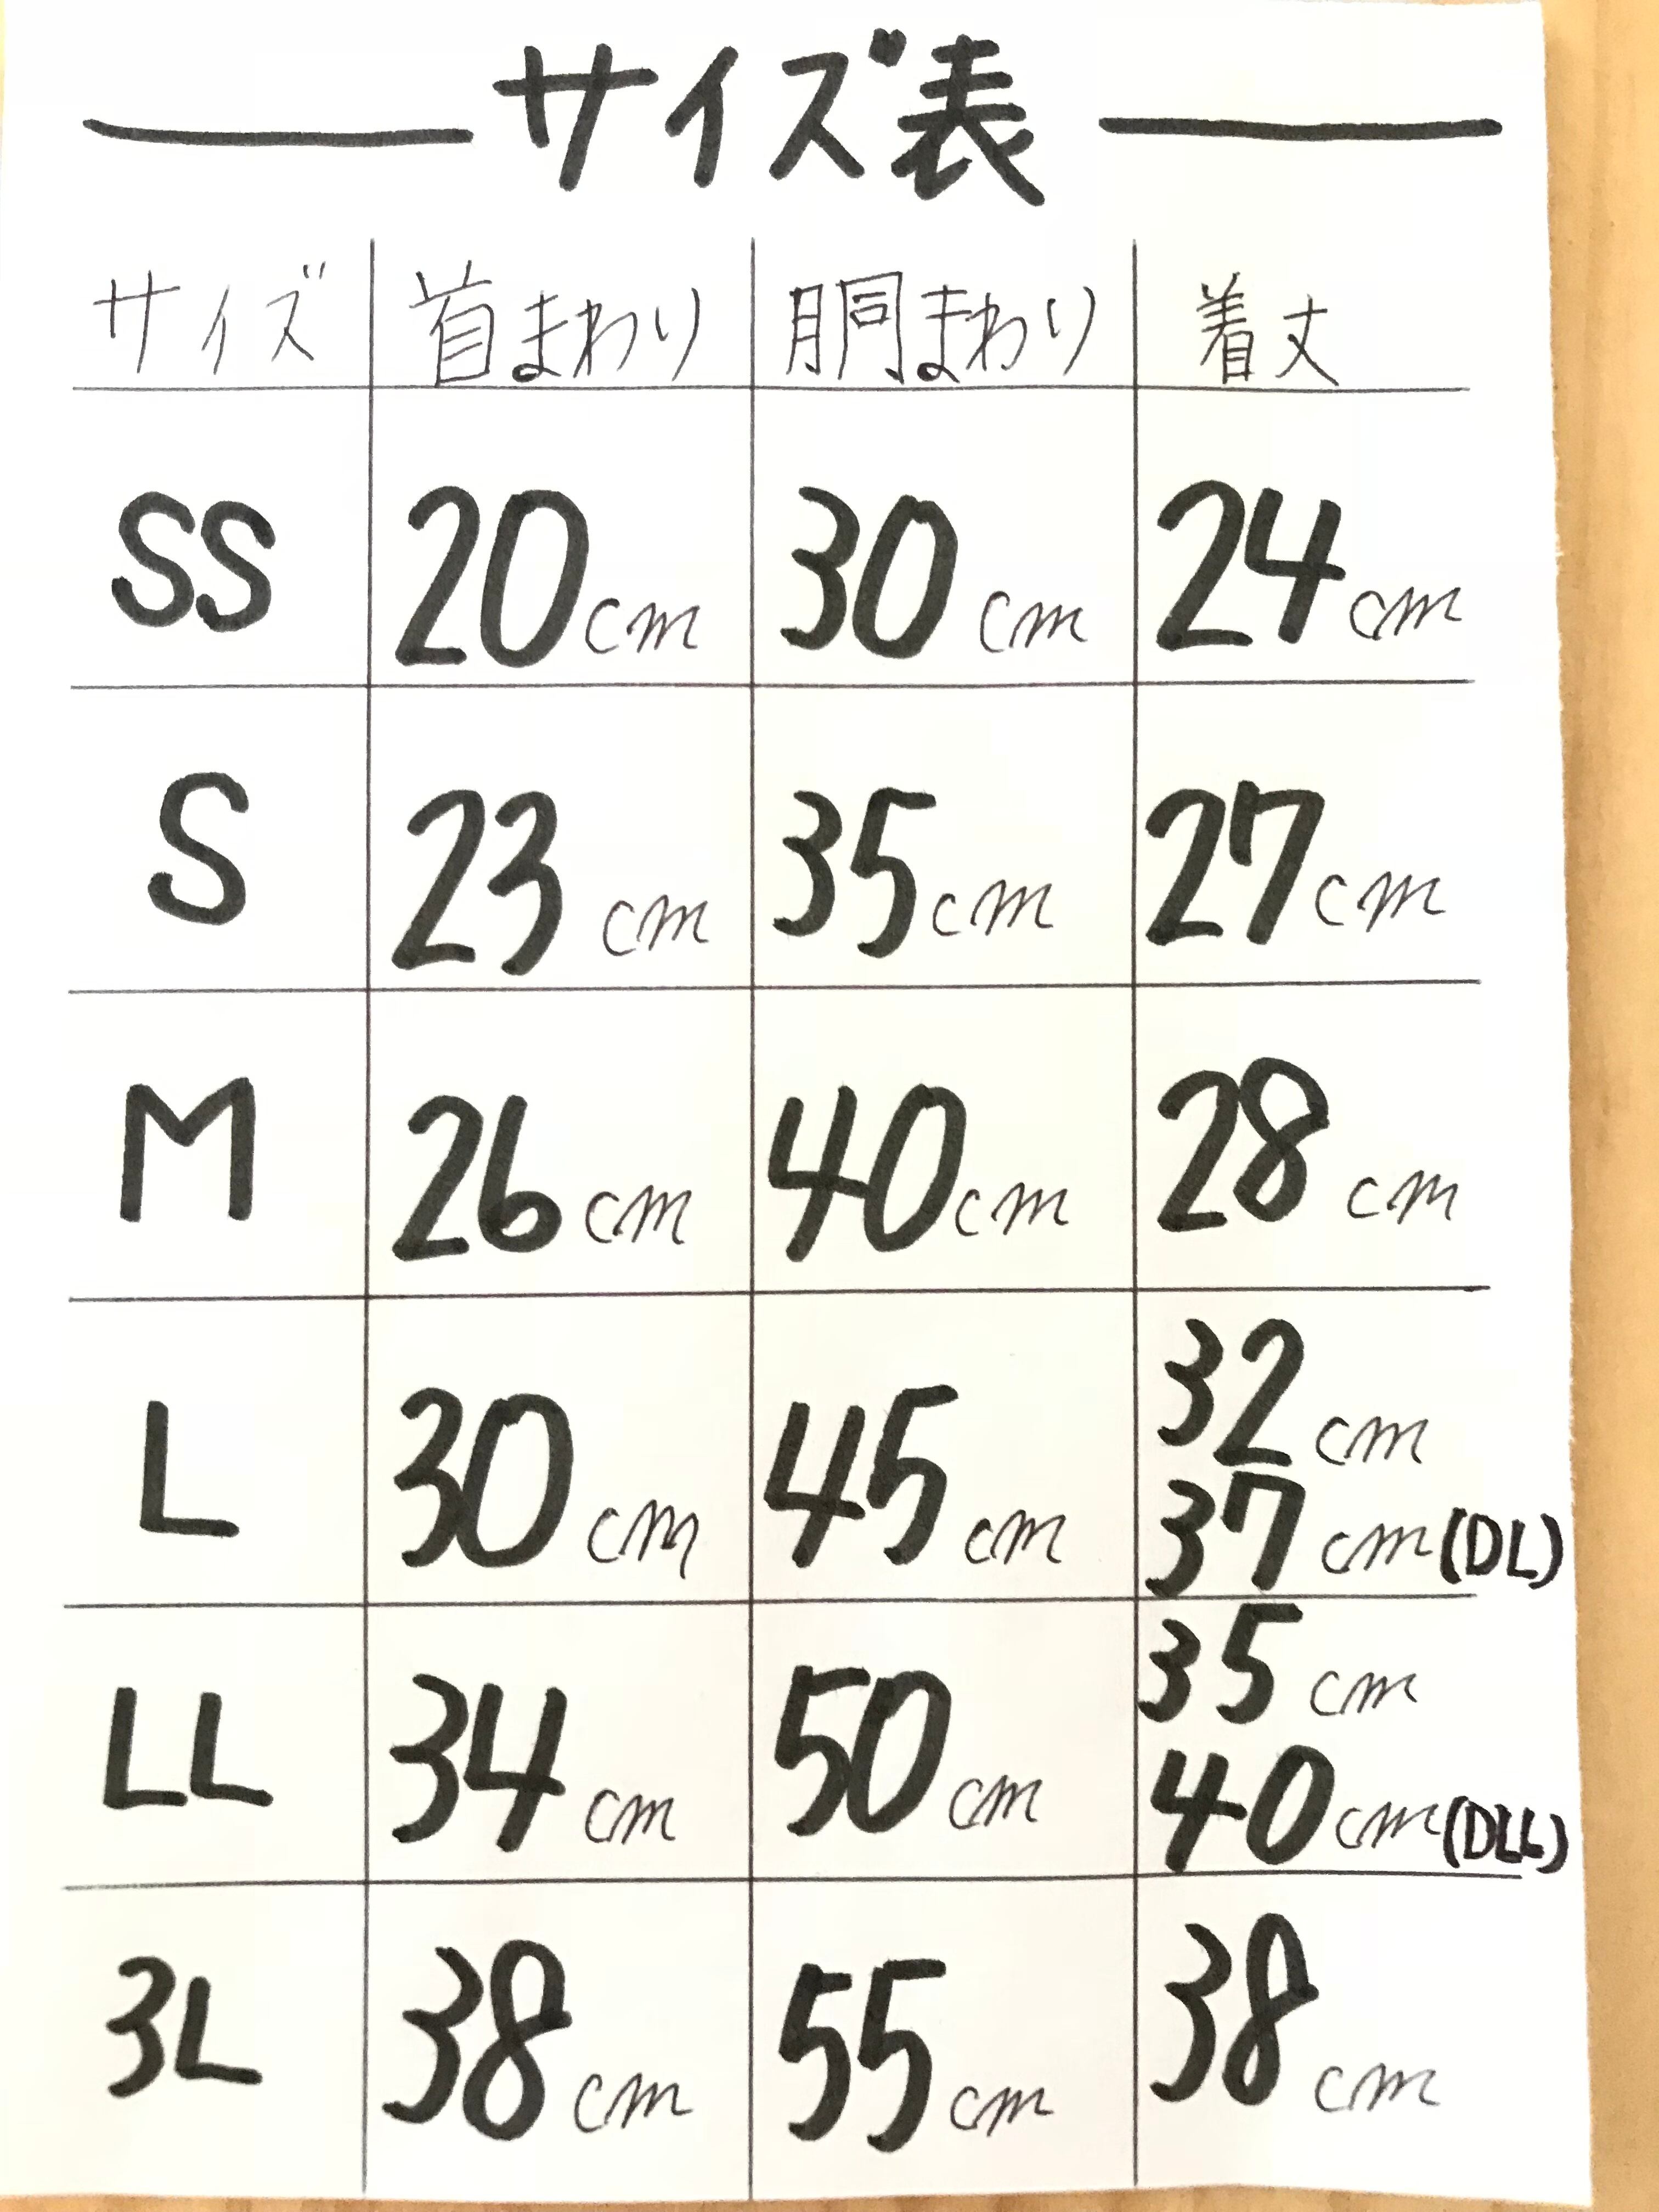 サイズ表
サイズ 首まわり 胴まわり 着丈
SS 20cm 30cm 24cm
S 23cm 35cm 27cm
M 26cm 40cm 28cm
L 30cm 45cm 32cm
37cm(DL)
LL 34cm 50cm 35cm
40cm(DLL)
3L 38cm 55cm 38cm